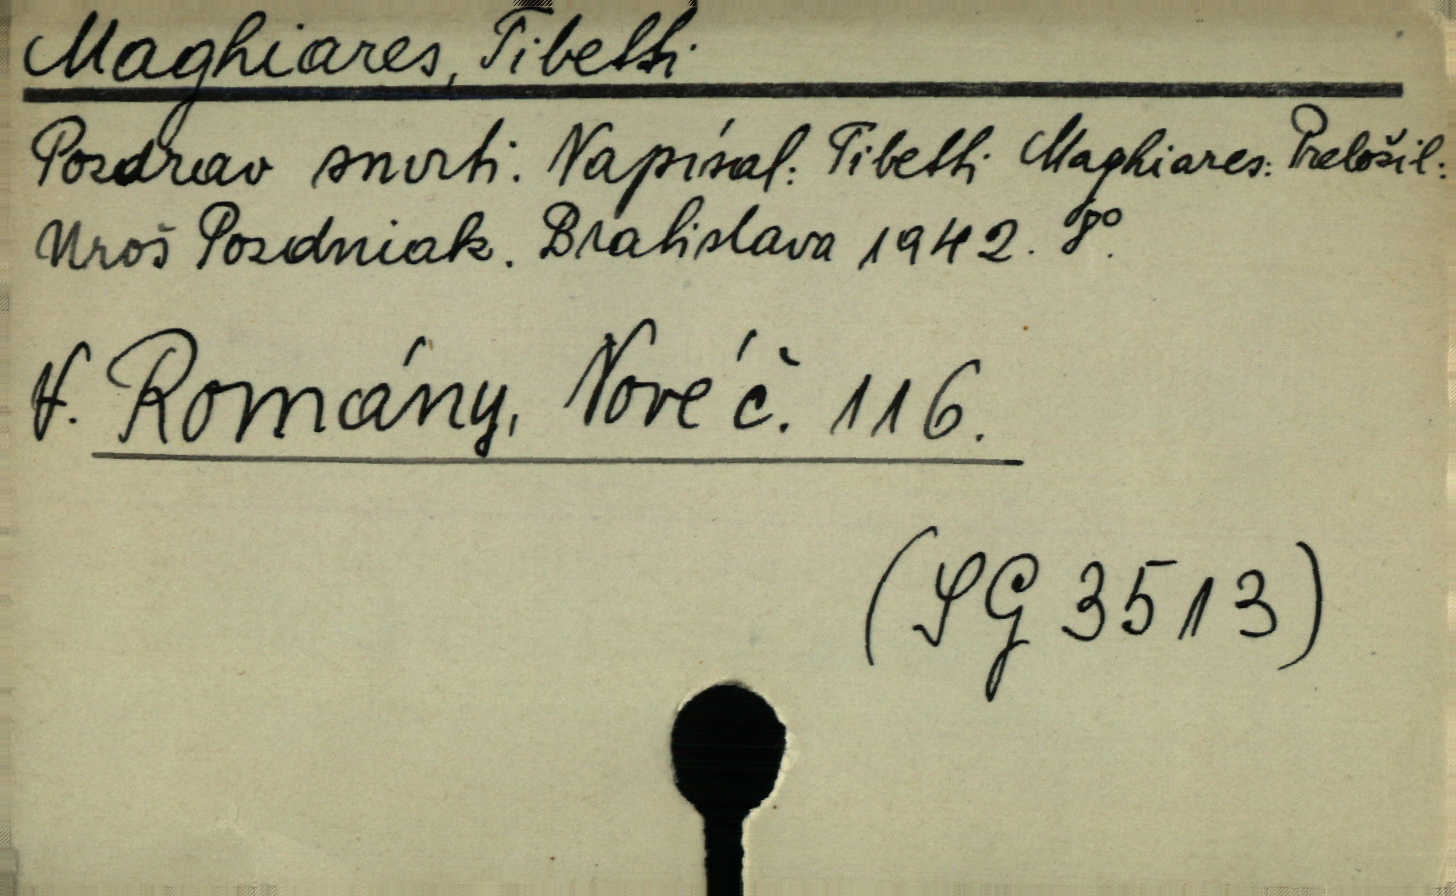 Maghiares, Tibetti
Pozdrav smrti. Napísal: Tibetti Maghiares: Preložil:
Uroš Pozdniak. Bratislava 1942. 8º.
V. Romány, Nové č. 116.
(SG 3513)